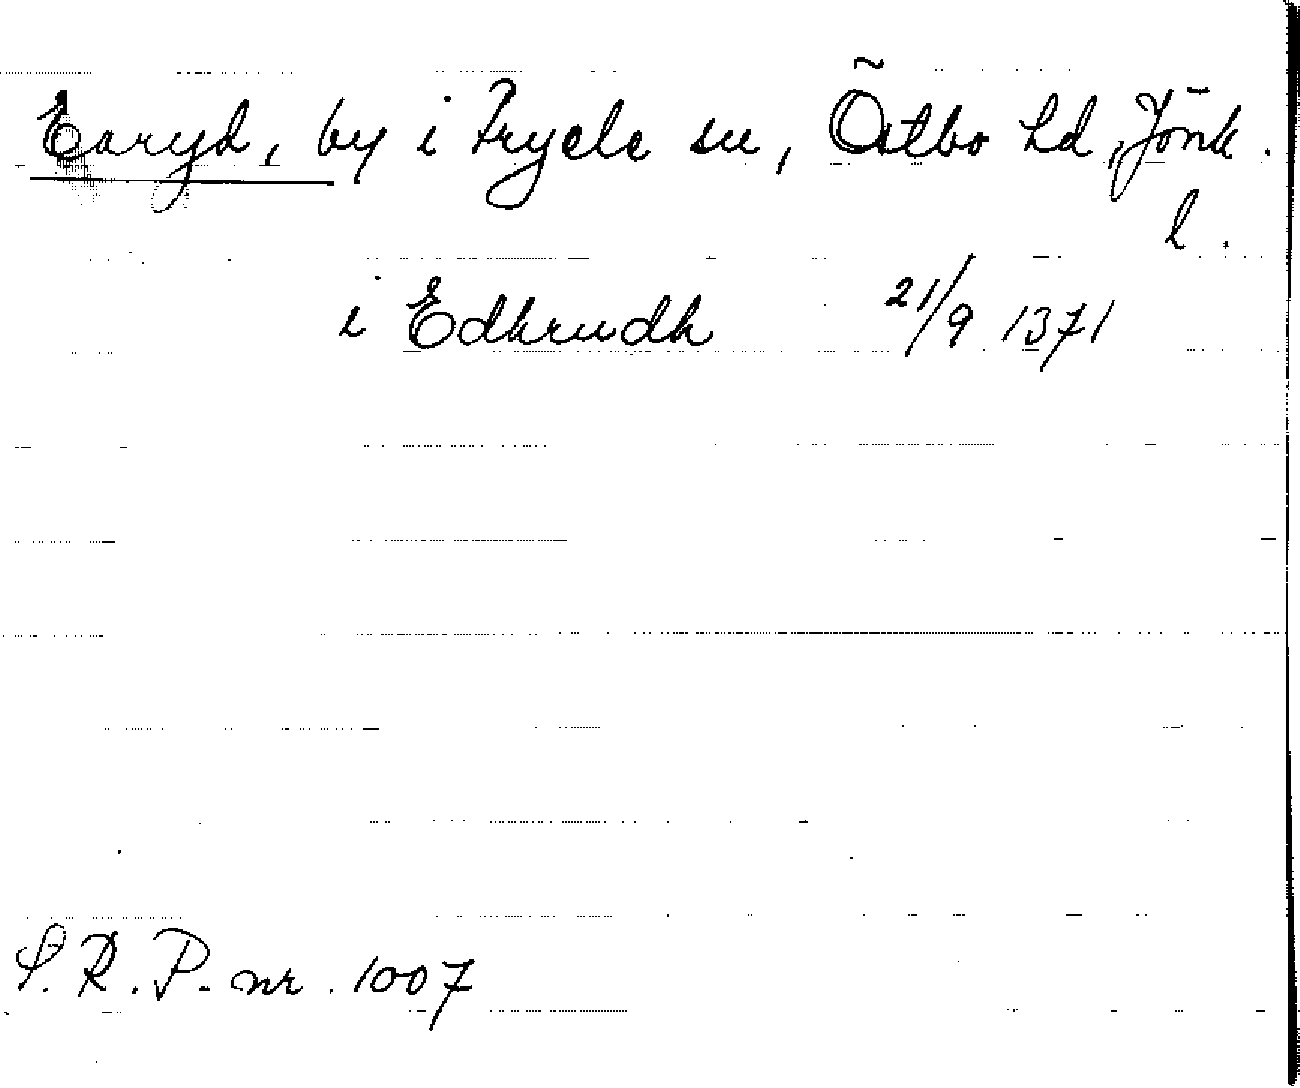 Earyd, by i Tryele sn, Östbo hd, Jönk.
l.
i Edhrudh 21/9 1371
S.R.P. nr. 1007